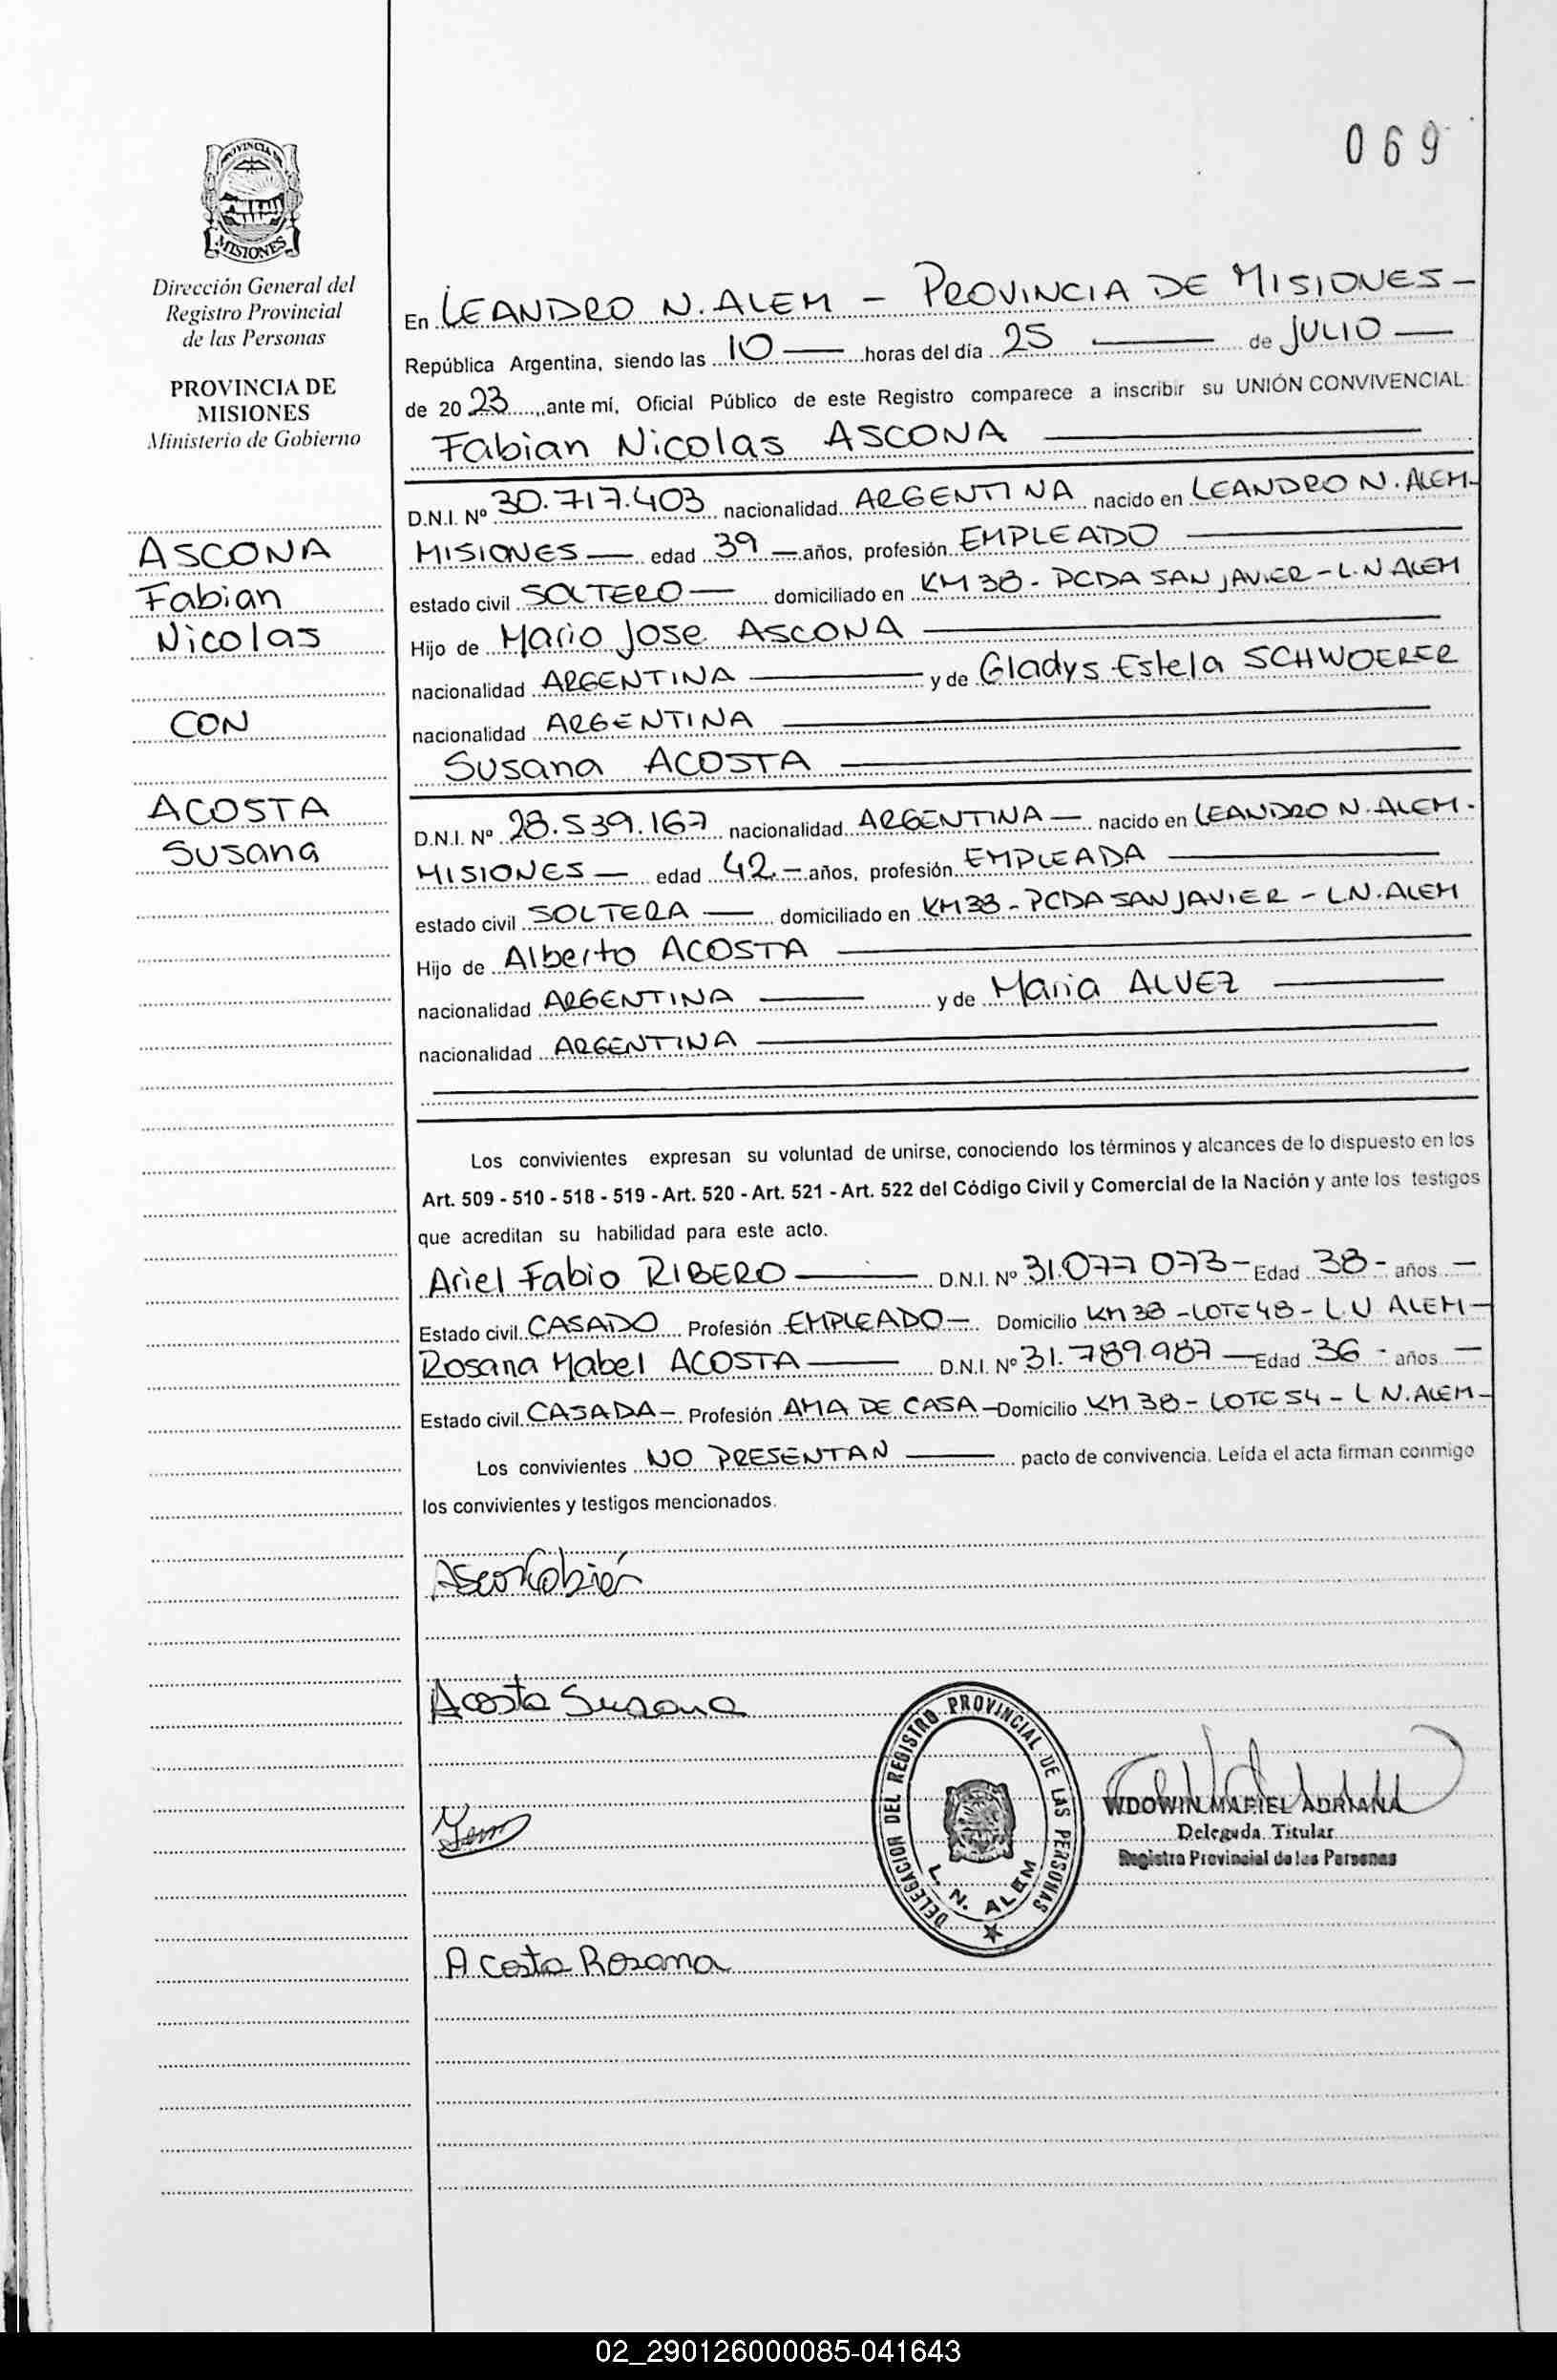 069
PROVINCIA DE
MISIONES
Dirección General del
Registro Provincial
de las Personas
PROVINCIA DE
MISIONES
Ministerio de Gobierno
ASCONA
Fabian
Nicolas
CON
ACOSTA
Susana
En LEANDRO N. ALEM - PROVINCIA DE MISIONES -
República Argentina, siendo las 10 — horas del día 25 — de JULIO —
de 2023, ante mí, Oficial Público de este Registro comparece a inscribir su UNIÓN CONVIVENCIAL:
Fabian Nicolas ASCONA —
D.N.I. Nº 30.717.403 nacionalidad ARGENTINA nacido en LEANDRO N. ALEM-
MISIONES — edad 39 — años, profesión EMPLEADO —
estado civil SOLTERO — domiciliado en KM 38 - PCDA SAN JAVIER - L.N ALEM
Hijo de Mario Jose ASCONA —
nacionalidad ARGENTINA — y de Gladys Estela SCHWOERER
nacionalidad ARGENTINA —
Susana ACOSTA —
D.N.I. Nº 28.539.167 nacionalidad ARGENTINA — nacido en LEANDRO N. ALEM.
MISIONES — edad 42.- años, profesión EMPLEADA —
estado civil SOLTERA — domiciliado en KM38 - PCDA SAN JAVIER - L.N. ALEM
Hijo de Alberto ACOSTA —
nacionalidad ARGENTINA — y de Maria ALVEZ —
nacionalidad ARGENTINA —
Los convivientes expresan su voluntad de unirse, conociendo los términos y alcances de lo dispuesto en los
Art. 509 - 510 - 518 - 519 - Art. 520 - Art. 521 - Art. 522 del Código Civil y Comercial de la Nación y ante los testigos
que acreditan su habilidad para este acto.
Ariel Fabio RIBERO — D.N.I. Nº 31.077 073 - Edad 38 - años —
Estado civil CASADO Profesión EMPLEADO — Domicilio KM 38 - LOTE 48 - L.N ALEM -
Rosana Mabel ACOSTA — D.N.I. Nº 31.789.987 — Edad 36 - años —
Estado civil CASADA - Profesión AMA DE CASA - Domicilio KM 38 - LOTE 54 - L N. ALEM -
Los convivientes NO PRESENTAN — pacto de convivencia. Leída el acta firman conmigo
los convivientes y testigos mencionados.
Acosta Susana
DELEGACION DEL REGISTRO PROVINCIAL DE LAS PERSONAS
L. N. ALEM
WDOWIN MARIEL ADRIANA
Delegada Titular
Registro Provincial de las Personas
Acosta Rosana
02_290126000085-041643